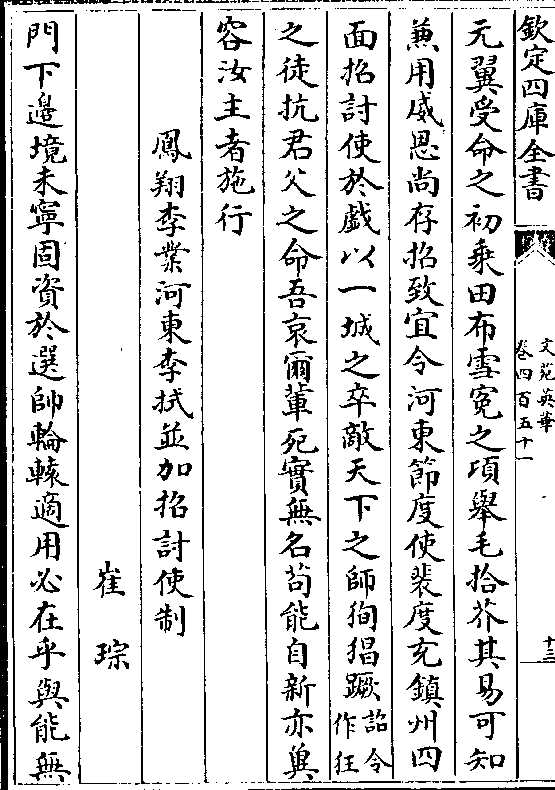 欽定四庫全書
文苑英華
卷四百五十一
十三
元翼受命之初乗田布雪寃之項舉毛拾芥其易可知
兼用威恩尚存招致宜令河東節度使裴度充鎮州四
面招討使於戯以一城之卒敵天下之師狥猖蹶詔令作狂
之徒抗君父之命吾哀爾輩死實無名茍能自新亦與
容汝主者施行
鳳翔李業河東李拭並加招討使制
崔琮
門下邉境未寧固資於選帥輪轅適用必在乎與能無